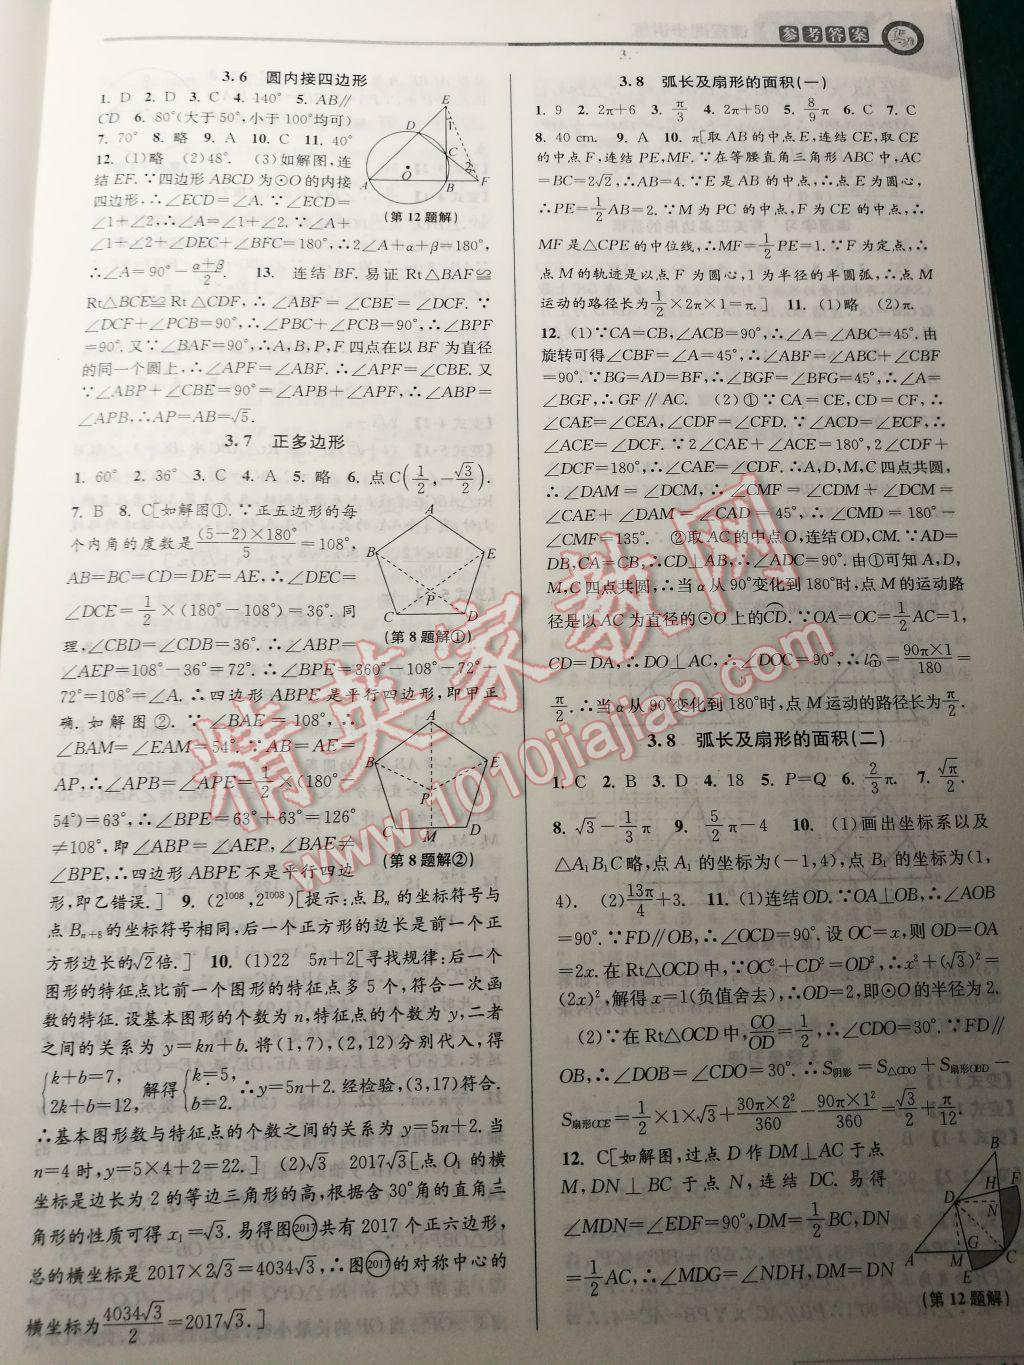 参考答案
3.6 圆内接四边形
1. D 2. D 3. C 4. 140° 5. AB∥
CD 6. 80°(大于50°,小于100°均可)
7. 70° 8. 略 9. A 10. C 11. 40°
12. (1)略 (2)48°. (3)如解图,连
结EF. ∵四边形ABCD为⊙O的内接
四边形,∴∠ECD=∠A. ∵∠ECD=
∠1+∠2,∴∠A=∠1+∠2. ∵∠A+
∠1+∠2+∠DEC+∠BFC=180°,∴2∠A+α+β=180°,
∴∠A=90°-(α+β)/2. 13. 连结BF. 易证Rt△BAF≌
Rt△BCE≌Rt△CDF,∴∠ABF=∠CBE=∠DCF. ∵
∠DCF+∠PCB=90°,∴∠PBC+∠PCB=90°,∴∠BPF
=90°. 又∵∠BAF=90°,∴A,B,P,F四点在以BF为直径
的同一个圆上,∴∠APF=∠ABF. ∴∠APF=∠CBE. 又
∵∠ABP+∠CBE=90°=∠APB+∠APF,∴∠ABP=
∠APB,∴AP=AB=√5.
(第12题解)
3.7 正多边形
1. 60° 2. 36° 3. C 4. A 5. 略 6. 点C(1/2,-√3/2).
7. B 8. C[如解图①. ∵正五边形的每
个内角的度数是(5-2)×180°/5=108°,
AB=BC=CD=DE=AE,∴∠DEC=
∠DCE=1/2×(180°-108°)=36°. 同
理,∠CBD=∠CDB=36°. ∴∠ABP=
∠AEP=108°-36°=72°. ∴∠BPE=360°-108°-72°-
72°=108°=∠A. ∴四边形ABPE是平行四边形,即甲正
确. 如解图②. ∵∠BAE=108°,∴
∠BAM=∠EAM=54°. ∵AB=AE=
AP,∴∠APB=∠APE=1/2×(180°-
54°)=63°,∴∠BPE=63°+63°=126°
≠108°,即∠ABP=∠AEP,∠BAE≠
∠BPE,∴四边形ABPE不是平行四边
形,即乙错误.] 9. (2^1008,2^1008)[提示:点Bₙ的坐标符号与
点Bₙ₊₈的坐标符号相同,后一个正方形的边长是前一个正
方形边长的√2倍.] 10. (1)22 5n+2[寻找规律:后一个
图形的特征点比前一个图形的特征点多5个,符合一次函
数的特征. 设基本图形的个数为n,特征点的个数为y,二者
之间的关系为y=kn+b. 将(1,7),(2,12)分别代入,得
{k+b=7, 2k+b=12, 解得{k=5, b=2. ∴y=5n+2. 经检验,(3,17)符合.
∴基本图形数与特征点的个数之间的关系为y=5n+2. 当
n=4时,y=5×4+2=22.] (2)√3 2017√3[点O₁的横
坐标是边长为2的等边三角形的高,根据含30°角的直角三
角形的性质可得x₁=√3. 易得图2017共有2017个正六边形,
总的横坐标是2017×2√3=4034√3,∴图2017的对称中心的
横坐标为4034√3/2=2017√3.]
(第8题解①)
(第8题解②)
3.8 弧长及扇形的面积(一)
1. 9 2. 2π+6 3. π/3 4. 2π+50 5. 8/9π 6. C 7. C
8. 40 cm. 9. A 10. π[取AB的中点E,连结CE,取CE
的中点F,连结PE,MF. ∵在等腰直角三角形ABC中,AC
=BC=2√2,∴AB=4. ∵E是AB的中点,∴点E为圆心,
∴PE=1/2AB=2. ∵M为PC的中点,F为CE的中点,∴
MF是△CPE的中位线,∴MF=1/2PE=1. ∵F为定点,∴
点M的轨迹是以点F为圆心,1为半径的半圆弧,∴点M
运动的路径长为1/2×2π×1=π.] 11. (1)略 (2)π.
12. (1)∵CA=CB,∠ACB=90°,∴∠A=∠ABC=45°. 由
旋转可得∠CBF=∠A=45°,∴∠ABF=∠ABC+∠CBF
=90°. ∵BG=AD=BF,∴∠BGF=∠BFG=45°,∴∠A=
∠BGF,∴GF∥AC. (2)①∵CA=CE,CD=CF,∴
∠CAE=∠CEA,∠CDF=∠CFD. ∵∠ACD=∠ECF,∴
∠ACE=∠DCF. ∵2∠CAE+∠ACE=180°,2∠CDF+
∠DCF=180°,∴∠CAE=∠CDF. ∴A,D,M,C四点共圆,
∴∠DAM=∠DCM,∴∠CMF=∠CDM+∠DCM=
∠CAE+∠DAM=∠CAD=45°,∴∠CMD=180°-
∠CMF=135°. ②取AC的中点O,连结OD,CM. ∵AD=
DB,CA=CB,∴CD⊥AB,∴∠ADC=90°. 由①可知A,D,
M,C四点共圆,∴当α从90°变化到180°时,点M的运动路
径是以AC为直径的⊙O上的CD. ∵OA=OC=1/2AC=1,
CD=DA,∴DO⊥AC,∴∠DOC=90°,∴l CD=90π×1/180=
π/2. ∴当α从90°变化到180°时,点M运动的路径长为π/2.
3.8 弧长及扇形的面积(二)
1. C 2. B 3. D 4. 18 5. P=Q 6. 2/3π. 7. √π/2.
8. √3-1/3π 9. 5/2π-4 10. (1)画出坐标系以及
△A₁B₁C略,点A₁的坐标为(-1,4),点B₁的坐标为(1,
4). (2)13π/4+3. 11. (1)连结OD. ∵OA⊥OB,∴∠AOB
=90°. ∵FD∥OB,∴∠OCD=90°. 设OC=x,则OD=OA
=2x. 在Rt△OCD中,∵OC²+CD²=OD²,∴x²+(√3)²=
(2x)²,解得x=1(负值舍去),∴OD=2,即⊙O的半径为2.
(2)∵在Rt△OCD中,CO/OD=1/2,∴∠CDO=30°. ∵FD∥
OB,∴∠DOB=∠CDO=30°. ∴S阴影=S△CDO+S扇形OBD-
S扇形OCE=1/2×1×√3+30π×2²/360-90π×1²/360=√3/2+π/12.
12. C[如解图,过点D作DM⊥AC于点
M,DN⊥BC于点N,连结DC. 易得
∠MDN=∠EDF=90°,DM=1/2BC,DN
=1/2AC,∴∠MDG=∠NDH,DM=DN
(第12题解)
精英家教网
www.1010jiajiao.com